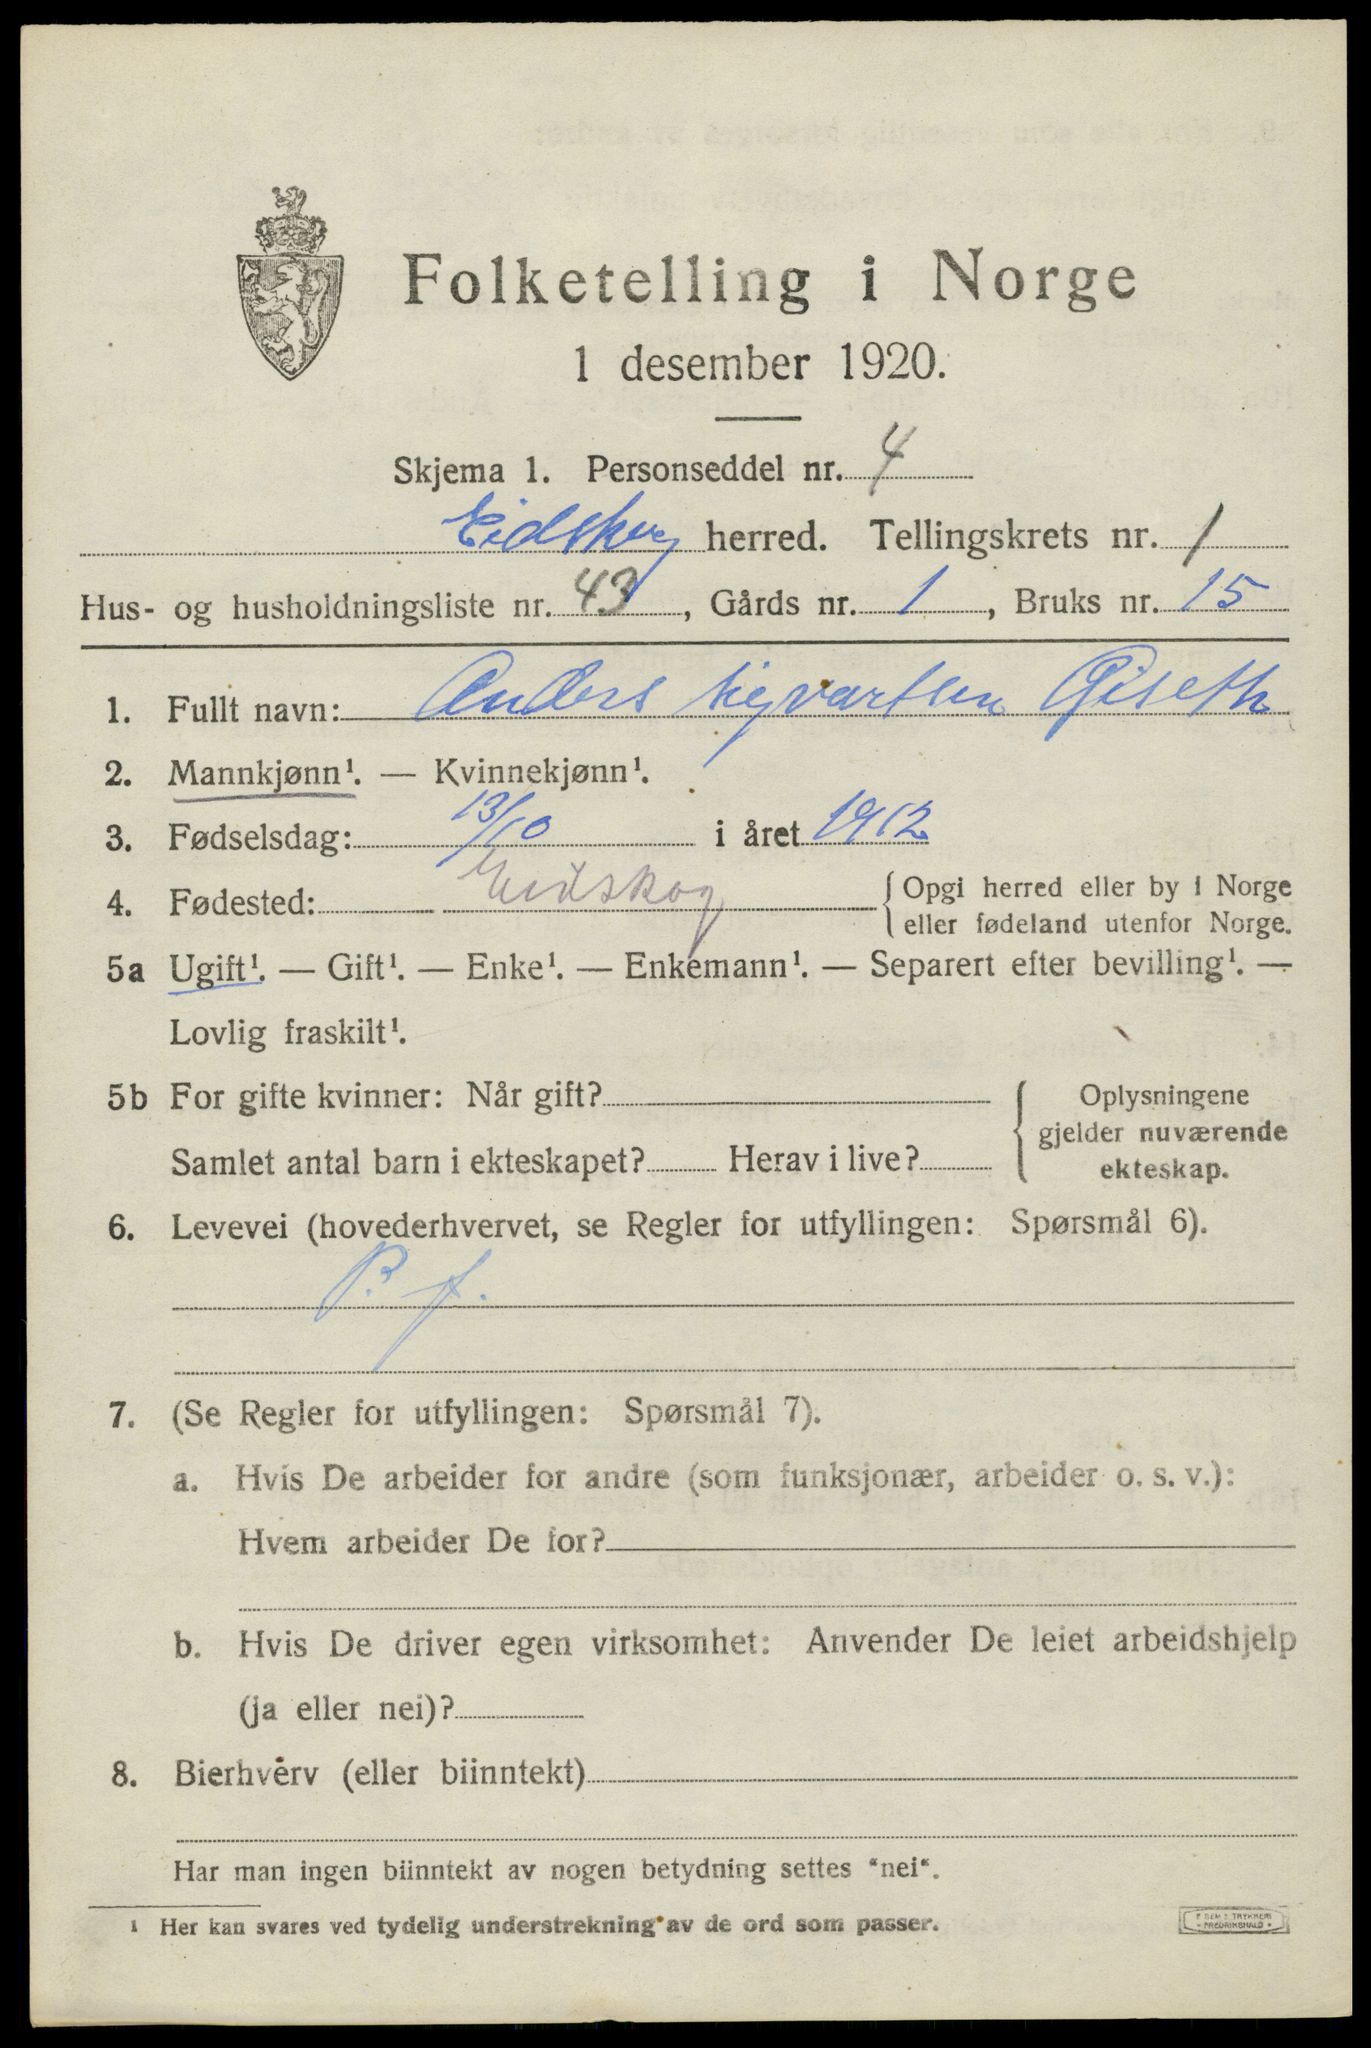 Folketelling i Norge
1 desember 1920.
Skjema 1. Personseddel nr. 4
Eidskog herred. Tellingskrets nr. 1
Hus- og husholdningsliste nr. 43, Gårds nr. 1, Bruks nr. 15
1. Fullt navn: Anders Sigvartsen Giseth
2. Mannkjønn¹. — Kvinnekjønn¹.
3. Fødselsdag: 13/10 i året 1912
4. Fødested: Eidskog { Opgi herred eller by i Norge
eller fødeland utenfor Norge.
5a Ugift¹. — Gift¹. — Enke¹. — Enkemann¹. — Separert efter bevilling¹. —
Lovlig fraskilt¹.
5b For gifte kvinner: Når gift? { Oplysningene
gjelder nuværende
Samlet antal barn i ekteskapet? Herav i live? ekteskap.
6. Levevei (hovederhvervet, se Regler for utfyllingen: Spørsmål 6).
P. f.
7. (Se Regler for utfyllingen: Spørsmål 7).
a. Hvis De arbeider for andre (som funksjonær, arbeider o. s. v.):
Hvem arbeider De for?
b. Hvis De driver egen virksomhet: Anvender De leiet arbeidshjelp
(ja eller nei)?
8. Bierhverv (eller biinntekt)
Har man ingen biinntekt av nogen betydning settes "nei".
¹ Her kan svares ved tydelig understrekning av de ord som passer.
TRYKKERI
FREDRIKSHALD